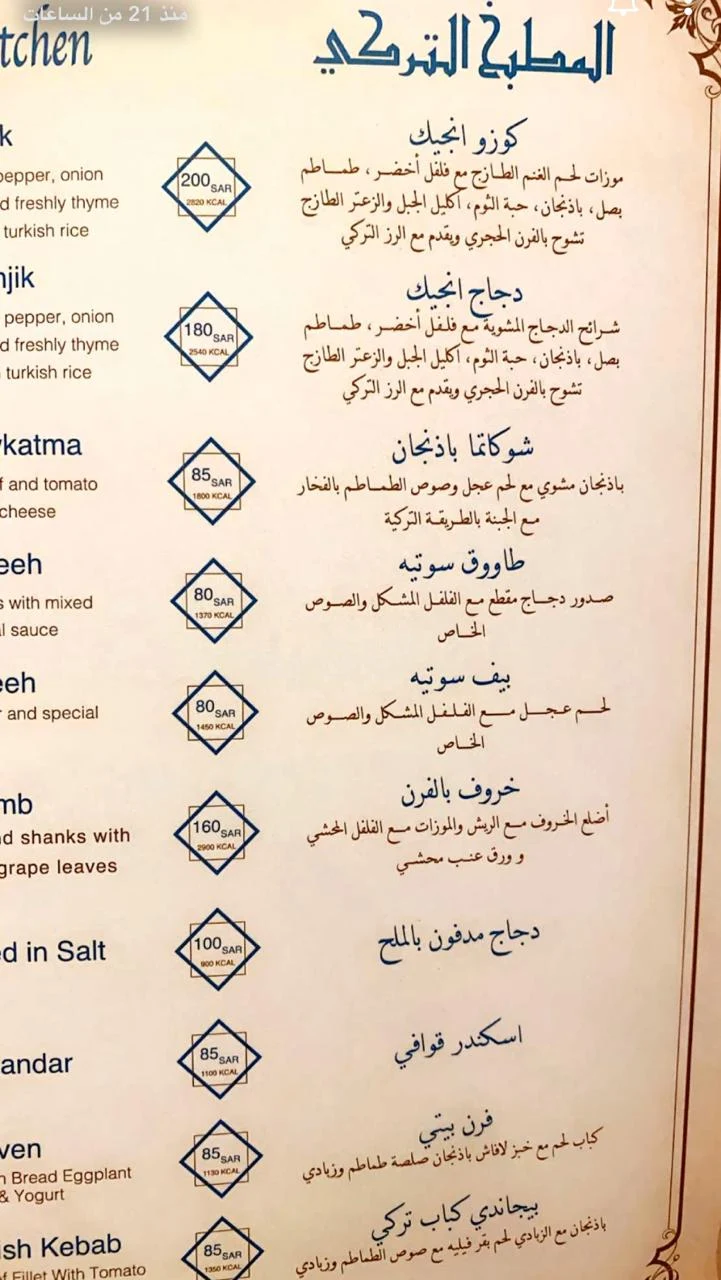 منذ 21 من الساعات
tchen
المطبخ التركي
k
كوزو انجيك
pepper, onion
d freshly thyme
turkish rice
200 SAR
2820 KCAL
موزات لحم الغنم الطازج مع فلفل أخضر ، طماطم
بصل، باذنجان، حبة الثوم، أكليل الجبل والزعتر الطازج
تشوح بالفرن الحجري ويقدم مع الرز التركي
njik
دجاج انجيك
pepper, onion
d freshly thyme
turkish rice
180 SAR
2540 KCAL
شرائح الدجاج المشوية مع فلفل أخضر ، طماطم
بصل، باذنجان، حبة الثوم، أكليل الجبل والزعتر الطازج
تشوح بالفرن الحجري ويقدم مع الرز التركي
katma
شوكاتما باذنجان
f and tomato
cheese
85 SAR
1800 KCAL
باذنجان مشوي مع لحم عجل وصوص الطماطم بالفخار
مع الجبنة بالطريقة التركية
eeh
طاووق سوتيه
s with mixed
l sauce
80 SAR
1370 KCAL
صدور دجاج مقطع مع الفلفل المشكل والصوص
الخاص
eeh
بيف سوتيه
r and special
80 SAR
1450 KCAL
لحم عجل مع الفلفل المشكل والصوص
الخاص
mb
خروف بالفرن
nd shanks with
grape leaves
160 SAR
2900 KCAL
أضلع الخروف مع الريش والموزات مع الفلفل المحشي
و ورق عنب محشي
ed in Salt
100 SAR
900 KCAL
دجاج مدفون بالملح
andar
85 SAR
1100 KCAL
اسكندر قوافي
ven
فرن بيتي
h Bread Eggplant
& Yogurt
85 SAR
1130 KCAL
كباب لحم مع خبز لافاش باذنجان صلصة طماطم وزبادي
ish Kebab
بيجاندي كباب تركي
ef Fillet With Tomato
85 SAR
1350 KCAL
باذنجان مع الزبادي لحم بقر فيليه مع صوص الطماطم وزبادي